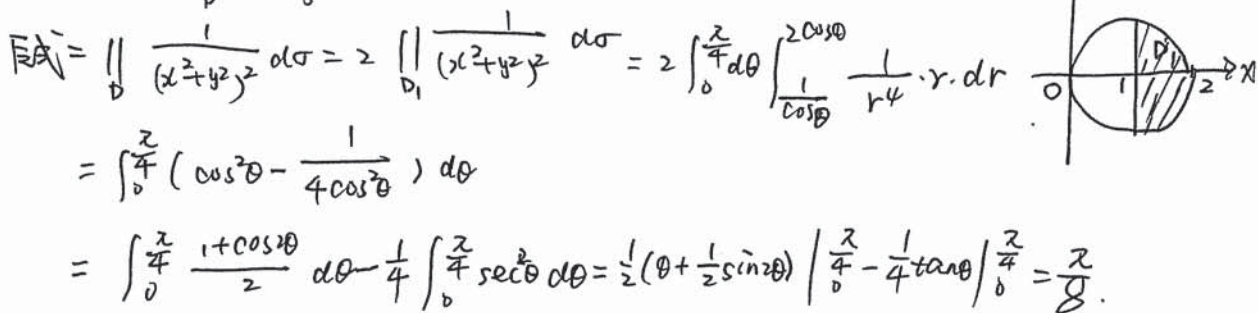 原式 = ∬_D 1/(x²+y²)² dσ = 2 ∬_{D₁} 1/(x²+y²)² dσ = 2 ∫_0^{π/4} dθ ∫_{1/cosθ}^{2cosθ} 1/r⁴ · r · dr
O 1 D₁ 2 x
= ∫_0^{π/4} ( cos²θ − 1/(4cos²θ) ) dθ
= ∫_0^{π/4} (1+cos2θ)/2 dθ − 1/4 ∫_0^{π/4} sec²θ dθ = 1/2 (θ + 1/2 sin2θ) |_0^{π/4} − 1/4 tanθ |_0^{π/4} = π/8.